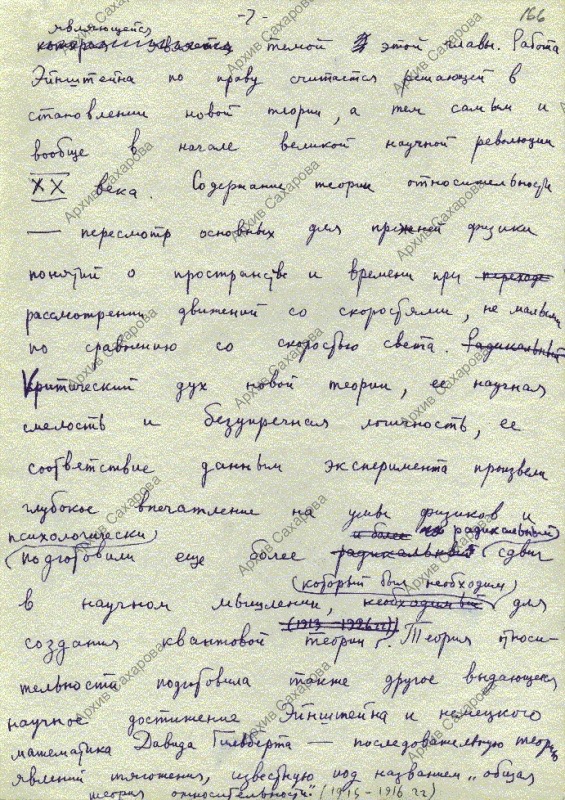 -7-
166
являющейся
темой этой главы. Работа
Эйнштейна по праву считается решающей в
становлении новой теории, а тем самым и
вообще в начале великой научной революции
XX века. Содержание теории относительности
— пересмотр основных для прежней физики
понятий о пространстве и времени при переходе
рассмотрении движений со скоростями, не малыми
по сравнению со скоростью света. Радикальный
Критический дух новой теории, ее научная
смелость и безупречная логичность, ее
соответствие данным эксперимента произвели
глубокое впечатление на умы физиков и
психологически и более радикальный
подготовили еще более радикальный сдвиг
(который был необходим)
в научном мышлении, необходимый для
(1913-1926 гг)
создания квантовой теории. Теория относи-
тельности подготовила также другое выдающееся
научное достижение Эйнштейна и немецкого
математика Давида Гильберта — последовательную теорию
явлений тяготения, известную под названием „общая
теория относительности" (1915-1916 гг)
Архив Сахарова